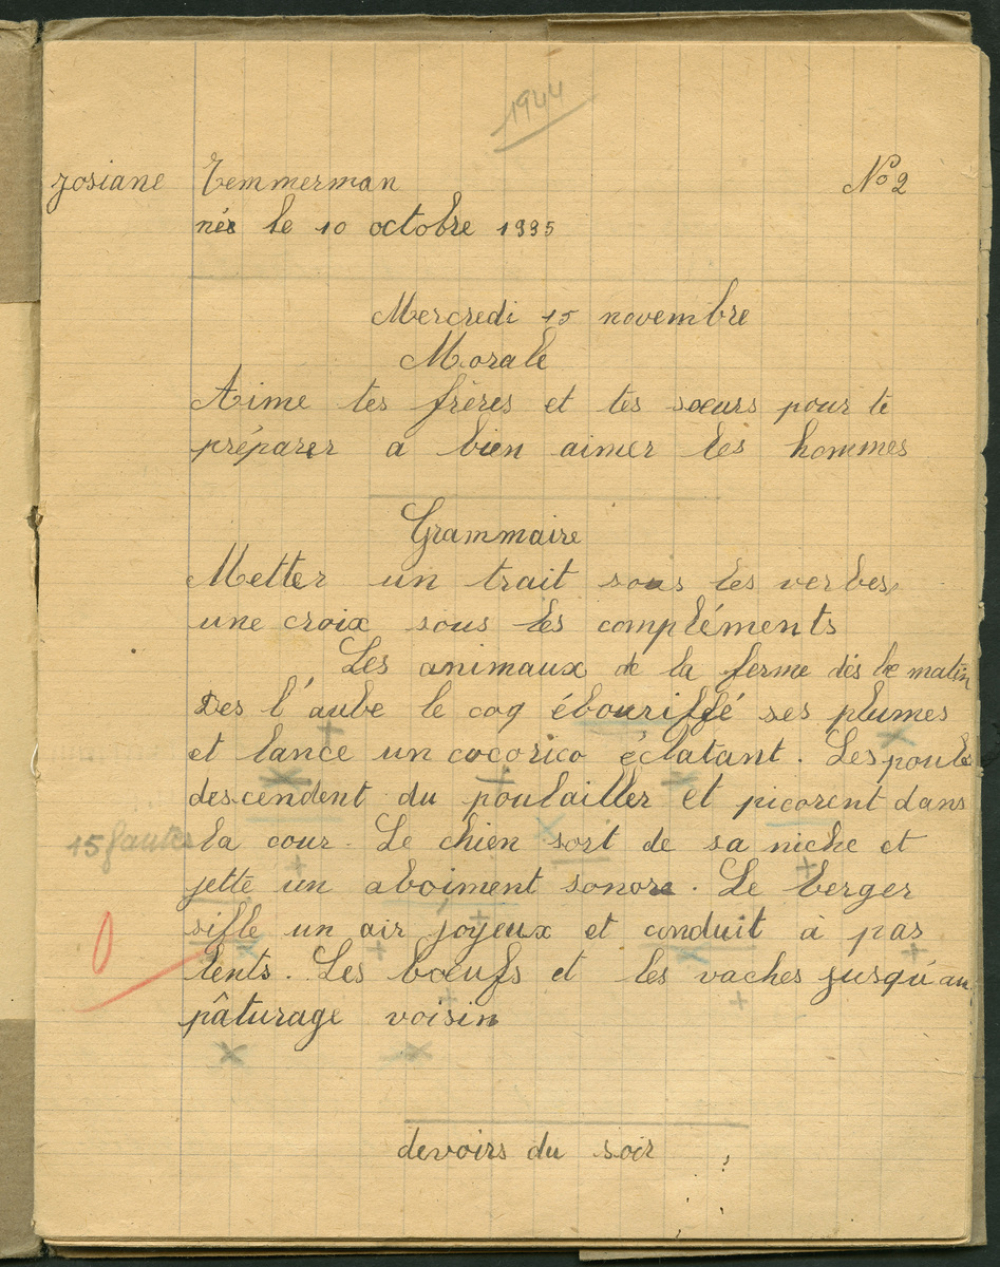 1944
Josiane Temmerman N° 2
née le 10 octobre 1935
Mercredi 15 novembre
Morale
Aime tes frères et tes sœurs pour te
préparer a bien aimer les hommes
Grammaire
Metter un trait sous les verbes,
une croix sous les compléments
Les animaux de la ferme dès le matin
Des l'aube le coq ébouriffé ses plumes
et lance un cocorico éclatant. Les poules
descendent du poulailler et picorent dans
15 fautes la cour. Le chien sort de sa niche et
jette un aboiment sonore. Le berger
0 sifle un air joyeux et conduit à pas
lents. Les bœufs et les vaches jusqu'au
pâturage voisin
devoirs du soir